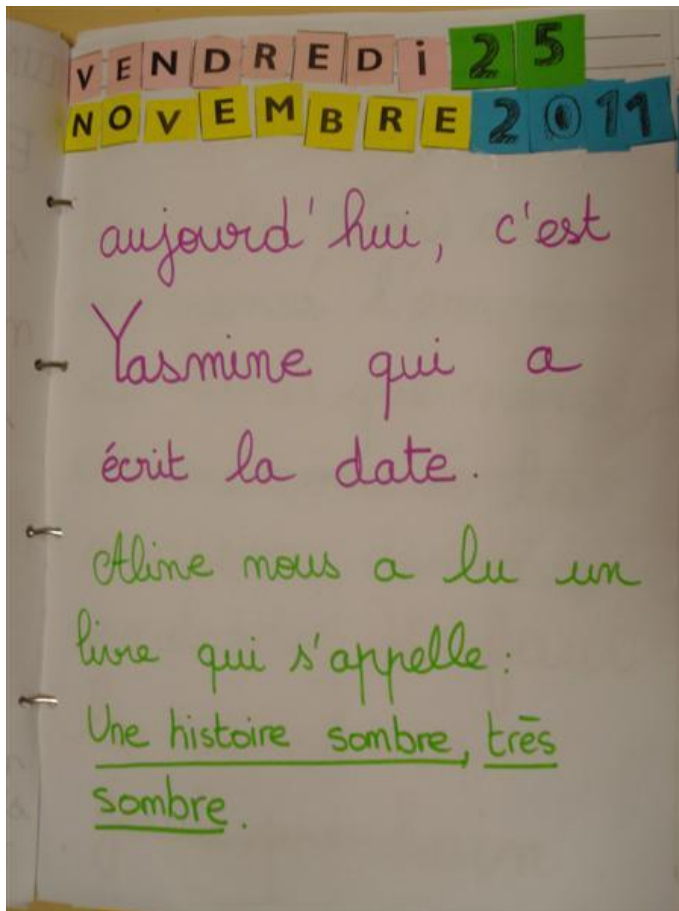 VENDREDi 25
NOVEMBRE 2011
aujourd'hui, c'est
Yasmine qui a
écrit la date.
Aline nous a lu un
livre qui s'appelle :
Une histoire sombre, très
sombre.